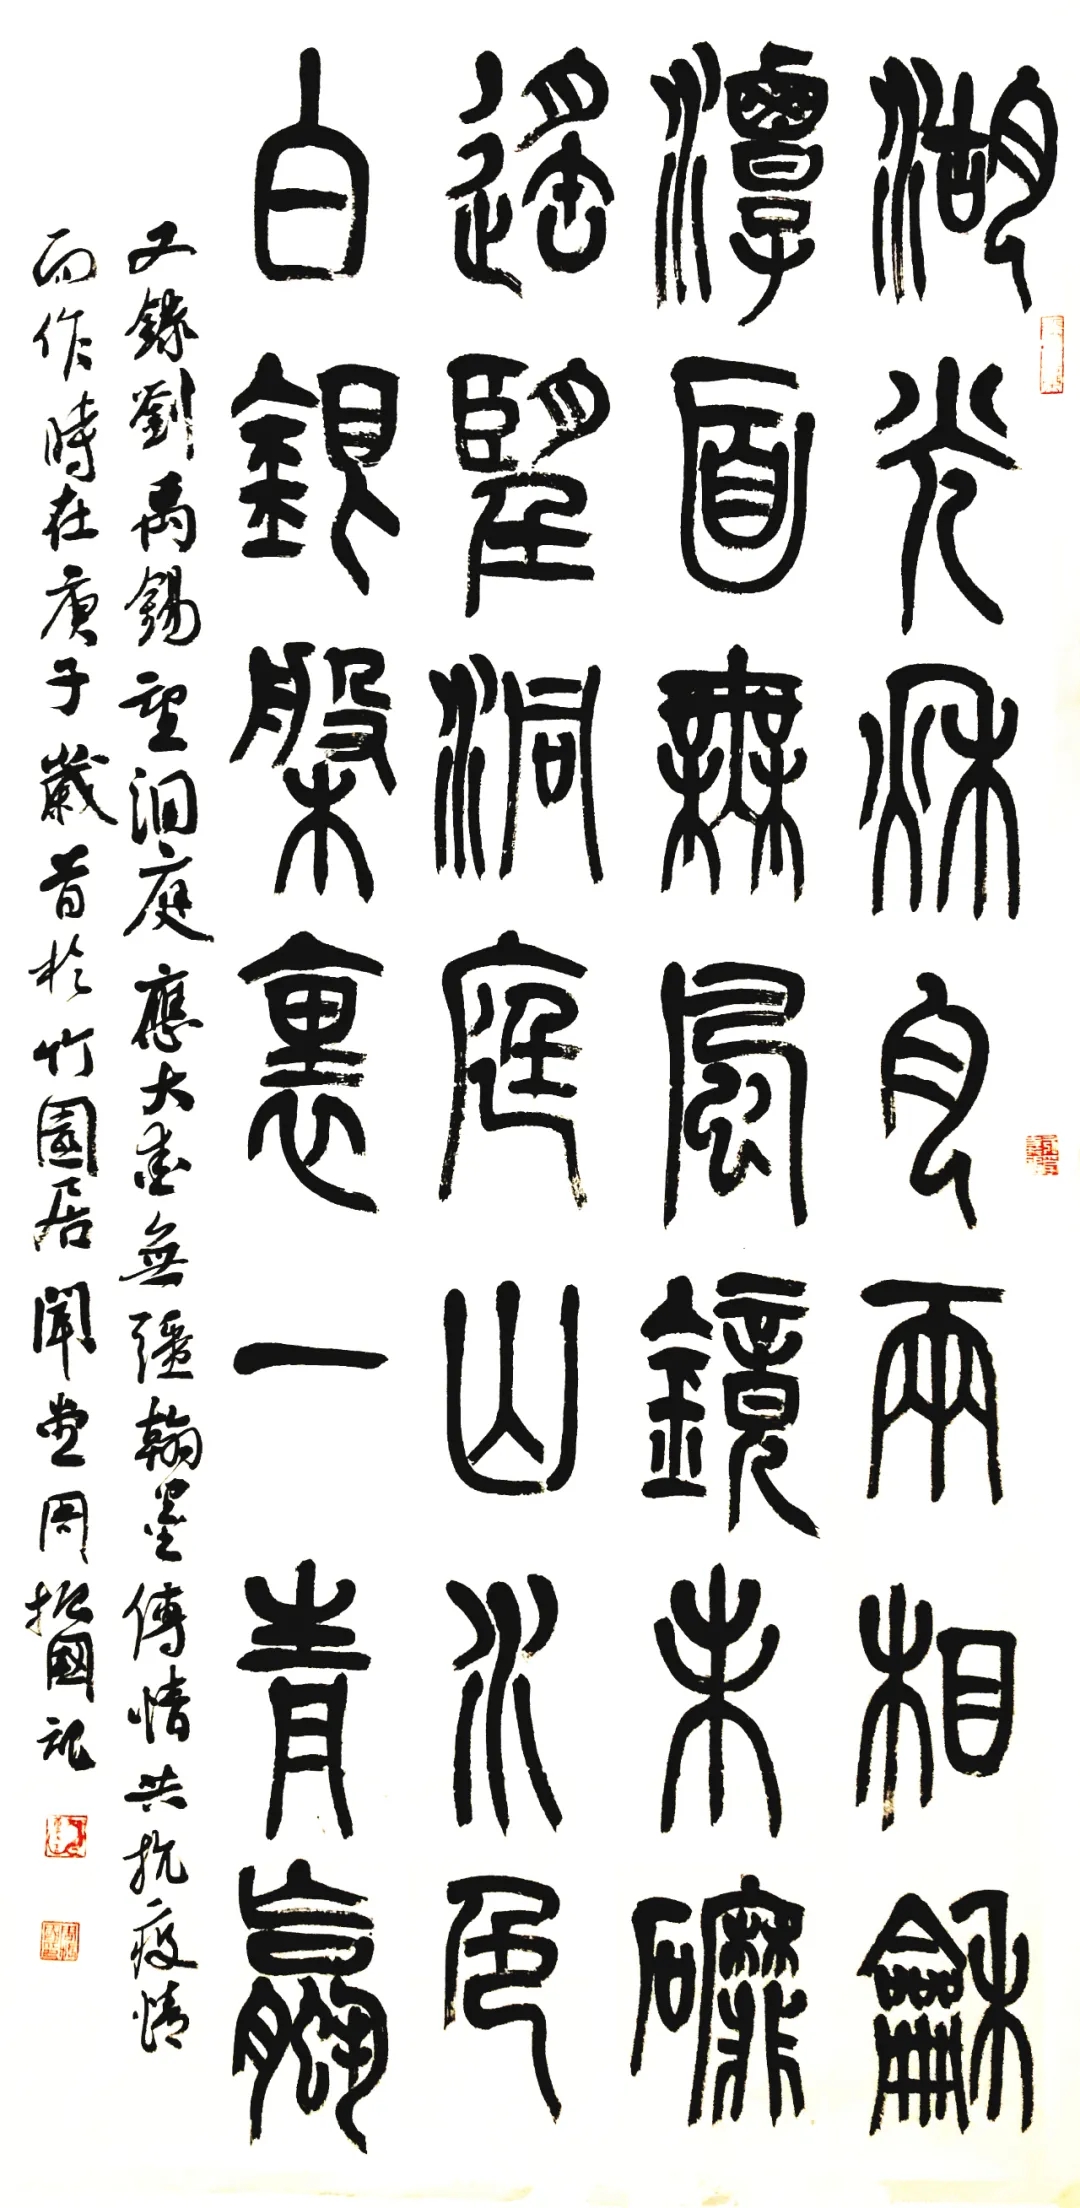 湖光秋月兩相龢
潭面無風鏡未䃺
遙望洞庭山水色
白銀槃裏一青蠃
又錄劉禹錫望洞庭應大愛無疆翰墨傳情共抗疫情
而作時在庚子歲首於竹園居聞堂周振國記